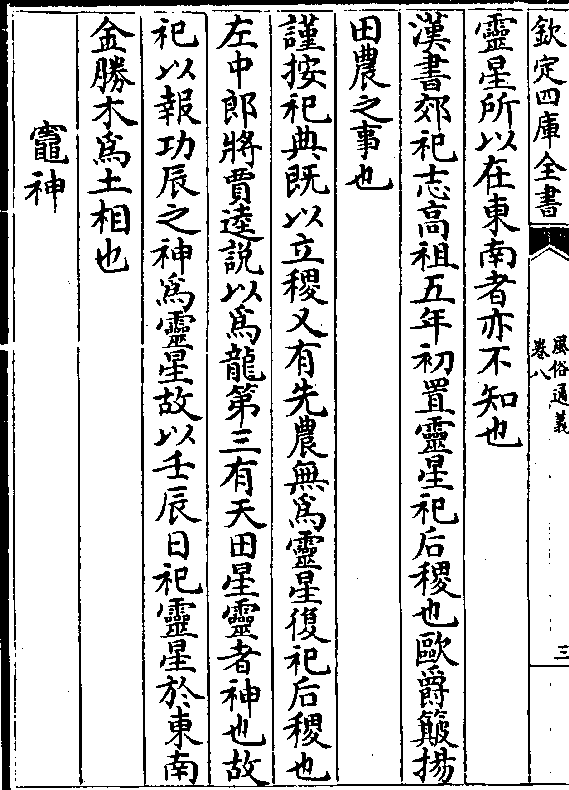 欽定四庫全書
風俗通義
卷八
三
靈星所以在東南者亦不知也
漢書郊祀志高祖五年初置靈星祀后稷也歐爵簸揚
田農之事也
謹按祀典既以立稷又有先農無為靈星復祀后稷也
左中郎將賈逵說以為龍第三有天田星靈者神也故
祀以報功辰之神為靈星故以壬辰日祀靈星於東南
金勝木為土相也
竈神